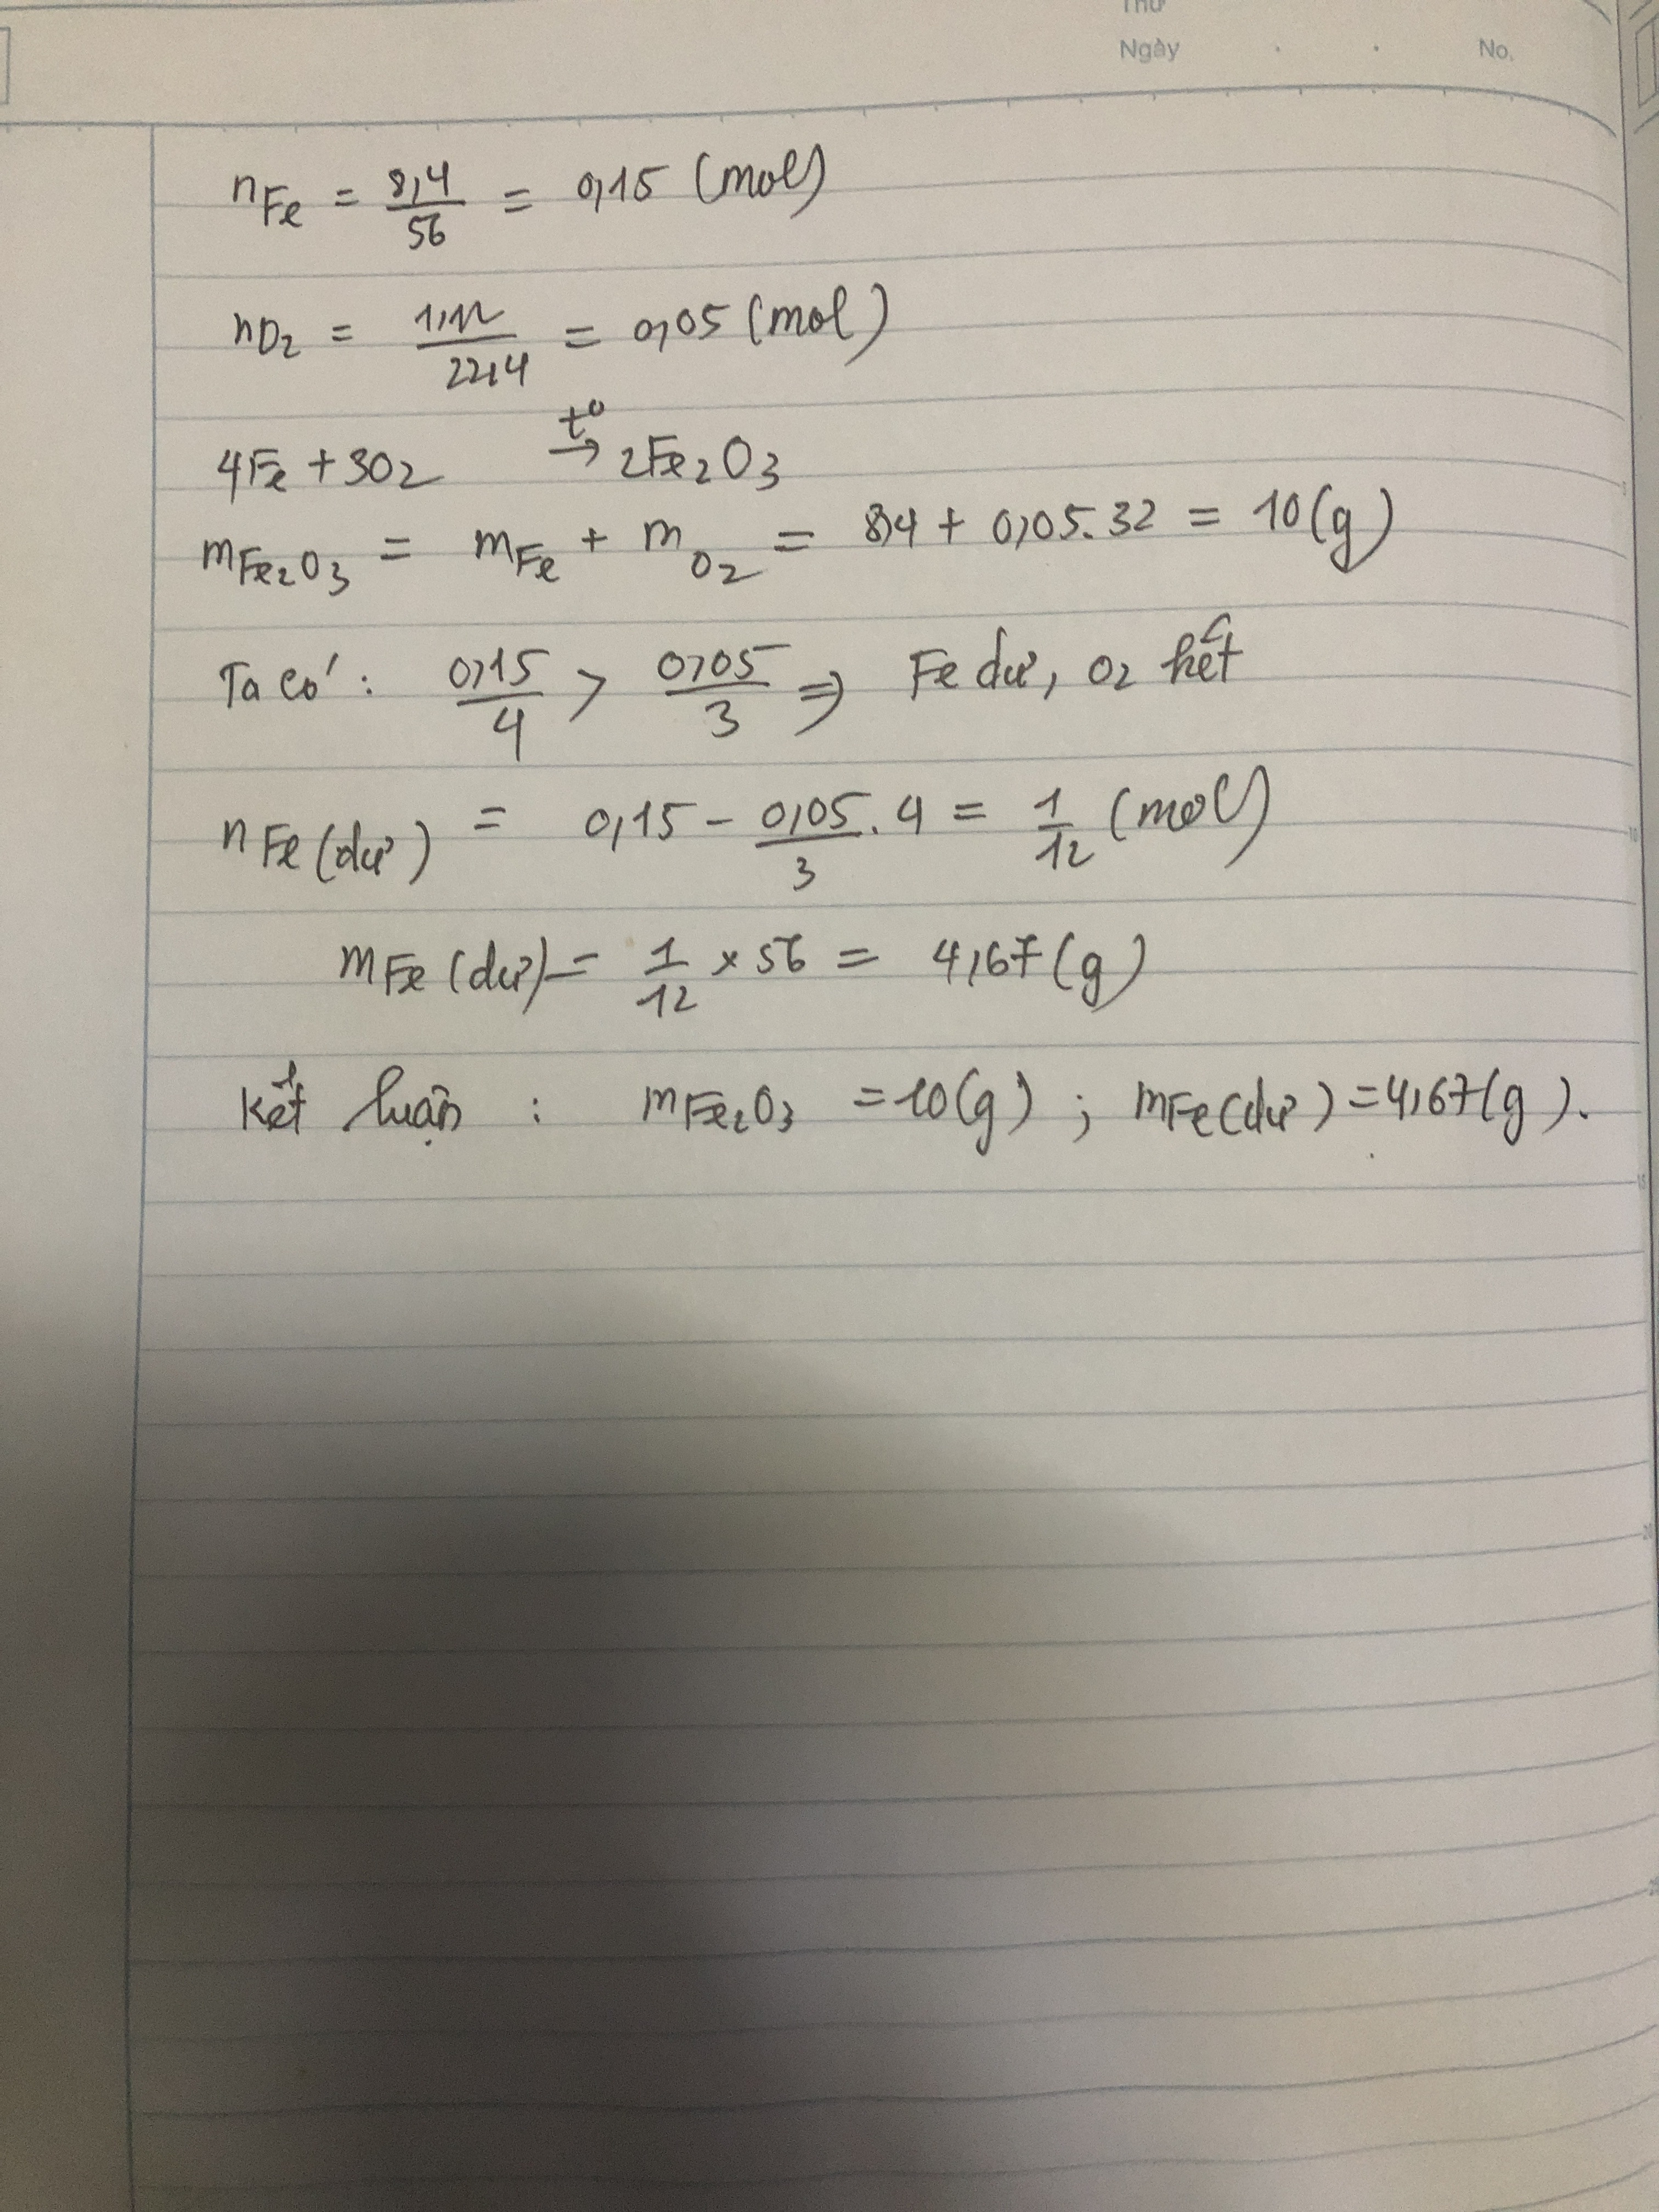 Thứ
Ngày . . No.
nFe = 8,4/56 = 0,15 (mol)
nO2 = 1,12/22,4 = 0,05 (mol)
4Fe + 3O2 →t° 2Fe2O3
mFe2O3 = mFe + mO2 = 8,4 + 0,05.32 = 10(g)
Ta có: 0,15/4 > 0,05/3 => Fe dư, O2 hết
nFe(dư) = 0,15 - 0,05/3 . 4 = 1/12 (mol)
mFe(dư) = 1/12 × 56 = 4,67(g)
Kết luận : mFe2O3 = 10(g) ; mFe(dư) = 4,67(g).